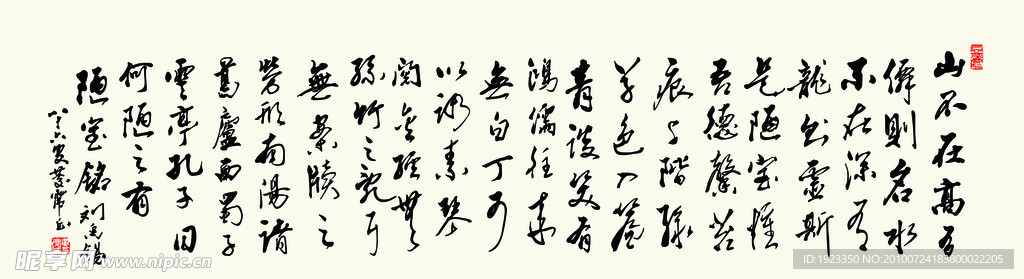 山不在高有
僊則名水
不在深有
龍則靈斯
是陋室惟
吾德馨苔
痕上階綠
草色入簾
青談笑有
鴻儒往來
無白丁可
以調素琴
閱金經無
絲竹之亂耳
無案牘之
勞形南陽諸
葛廬西蜀子
雲亭孔子曰
何陋之有
陋室銘刘禹錫
昵享网 www.nipic.cn
ID:1923350 NO:20100724183800022205